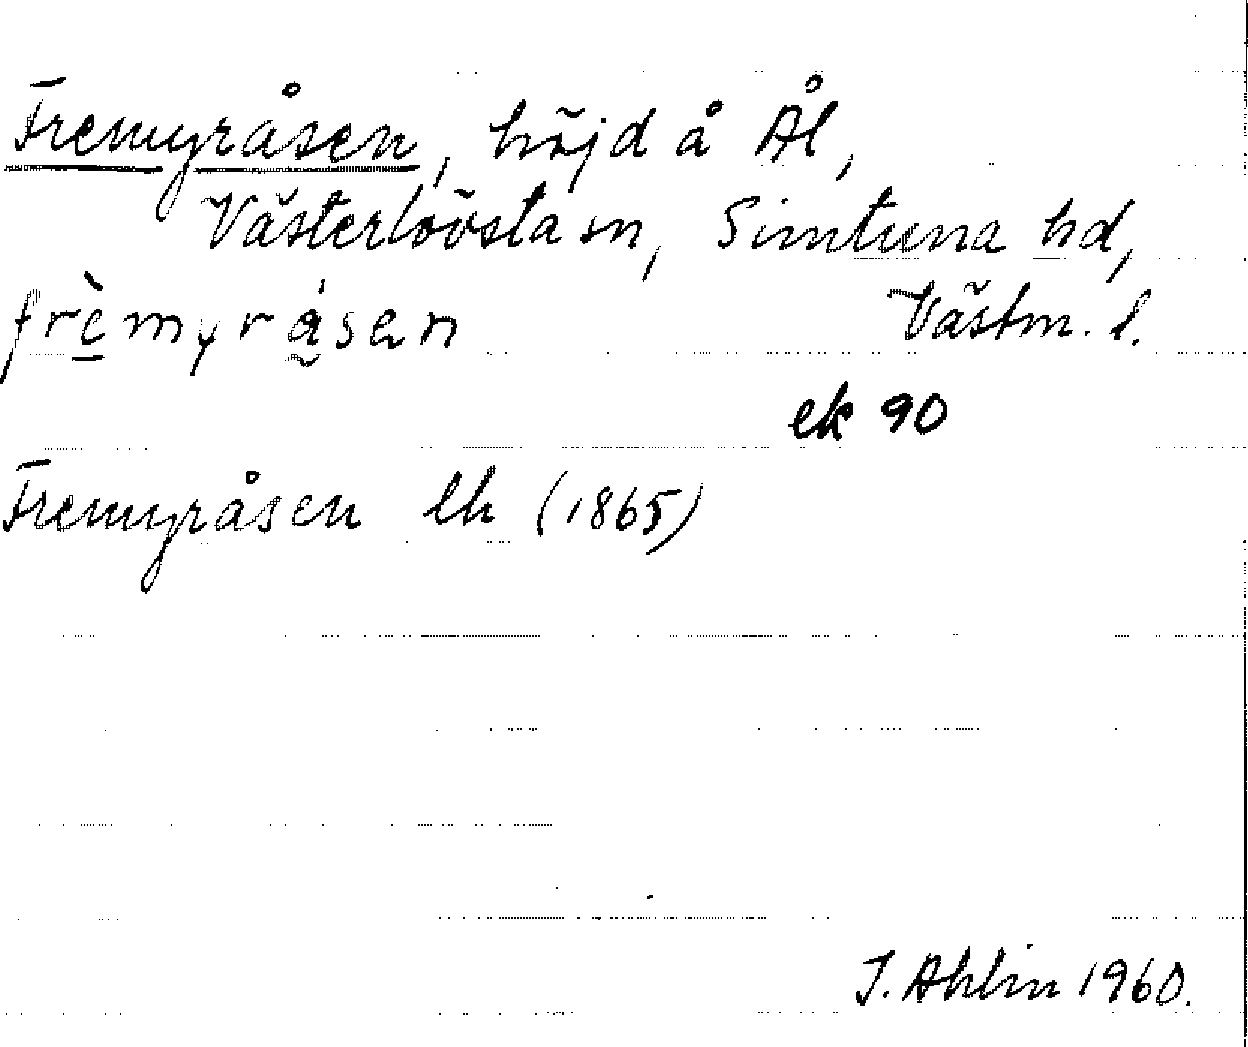 Fremyråsen, höjd å Ål,
Västerlövsta sn, Simtuna hd,
frèmyråsen Västm. l.
ek 90
Fremyråsen lh (1865)
J. Ahlin 1960.